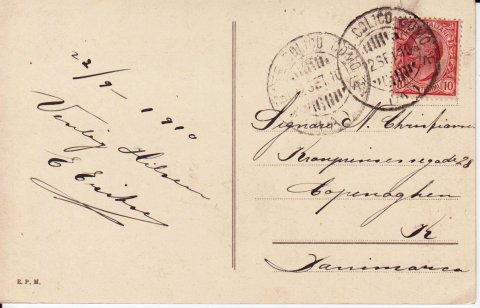 22/9 - 1910
Venlig Hilsen
E
E. P. M.
COLICO COMO
SET. 10
COLICO COMO
2 SET 10
10
Signore N. Christianse
Kronprinsessegade 28
Copenaghen
K
Danimarca